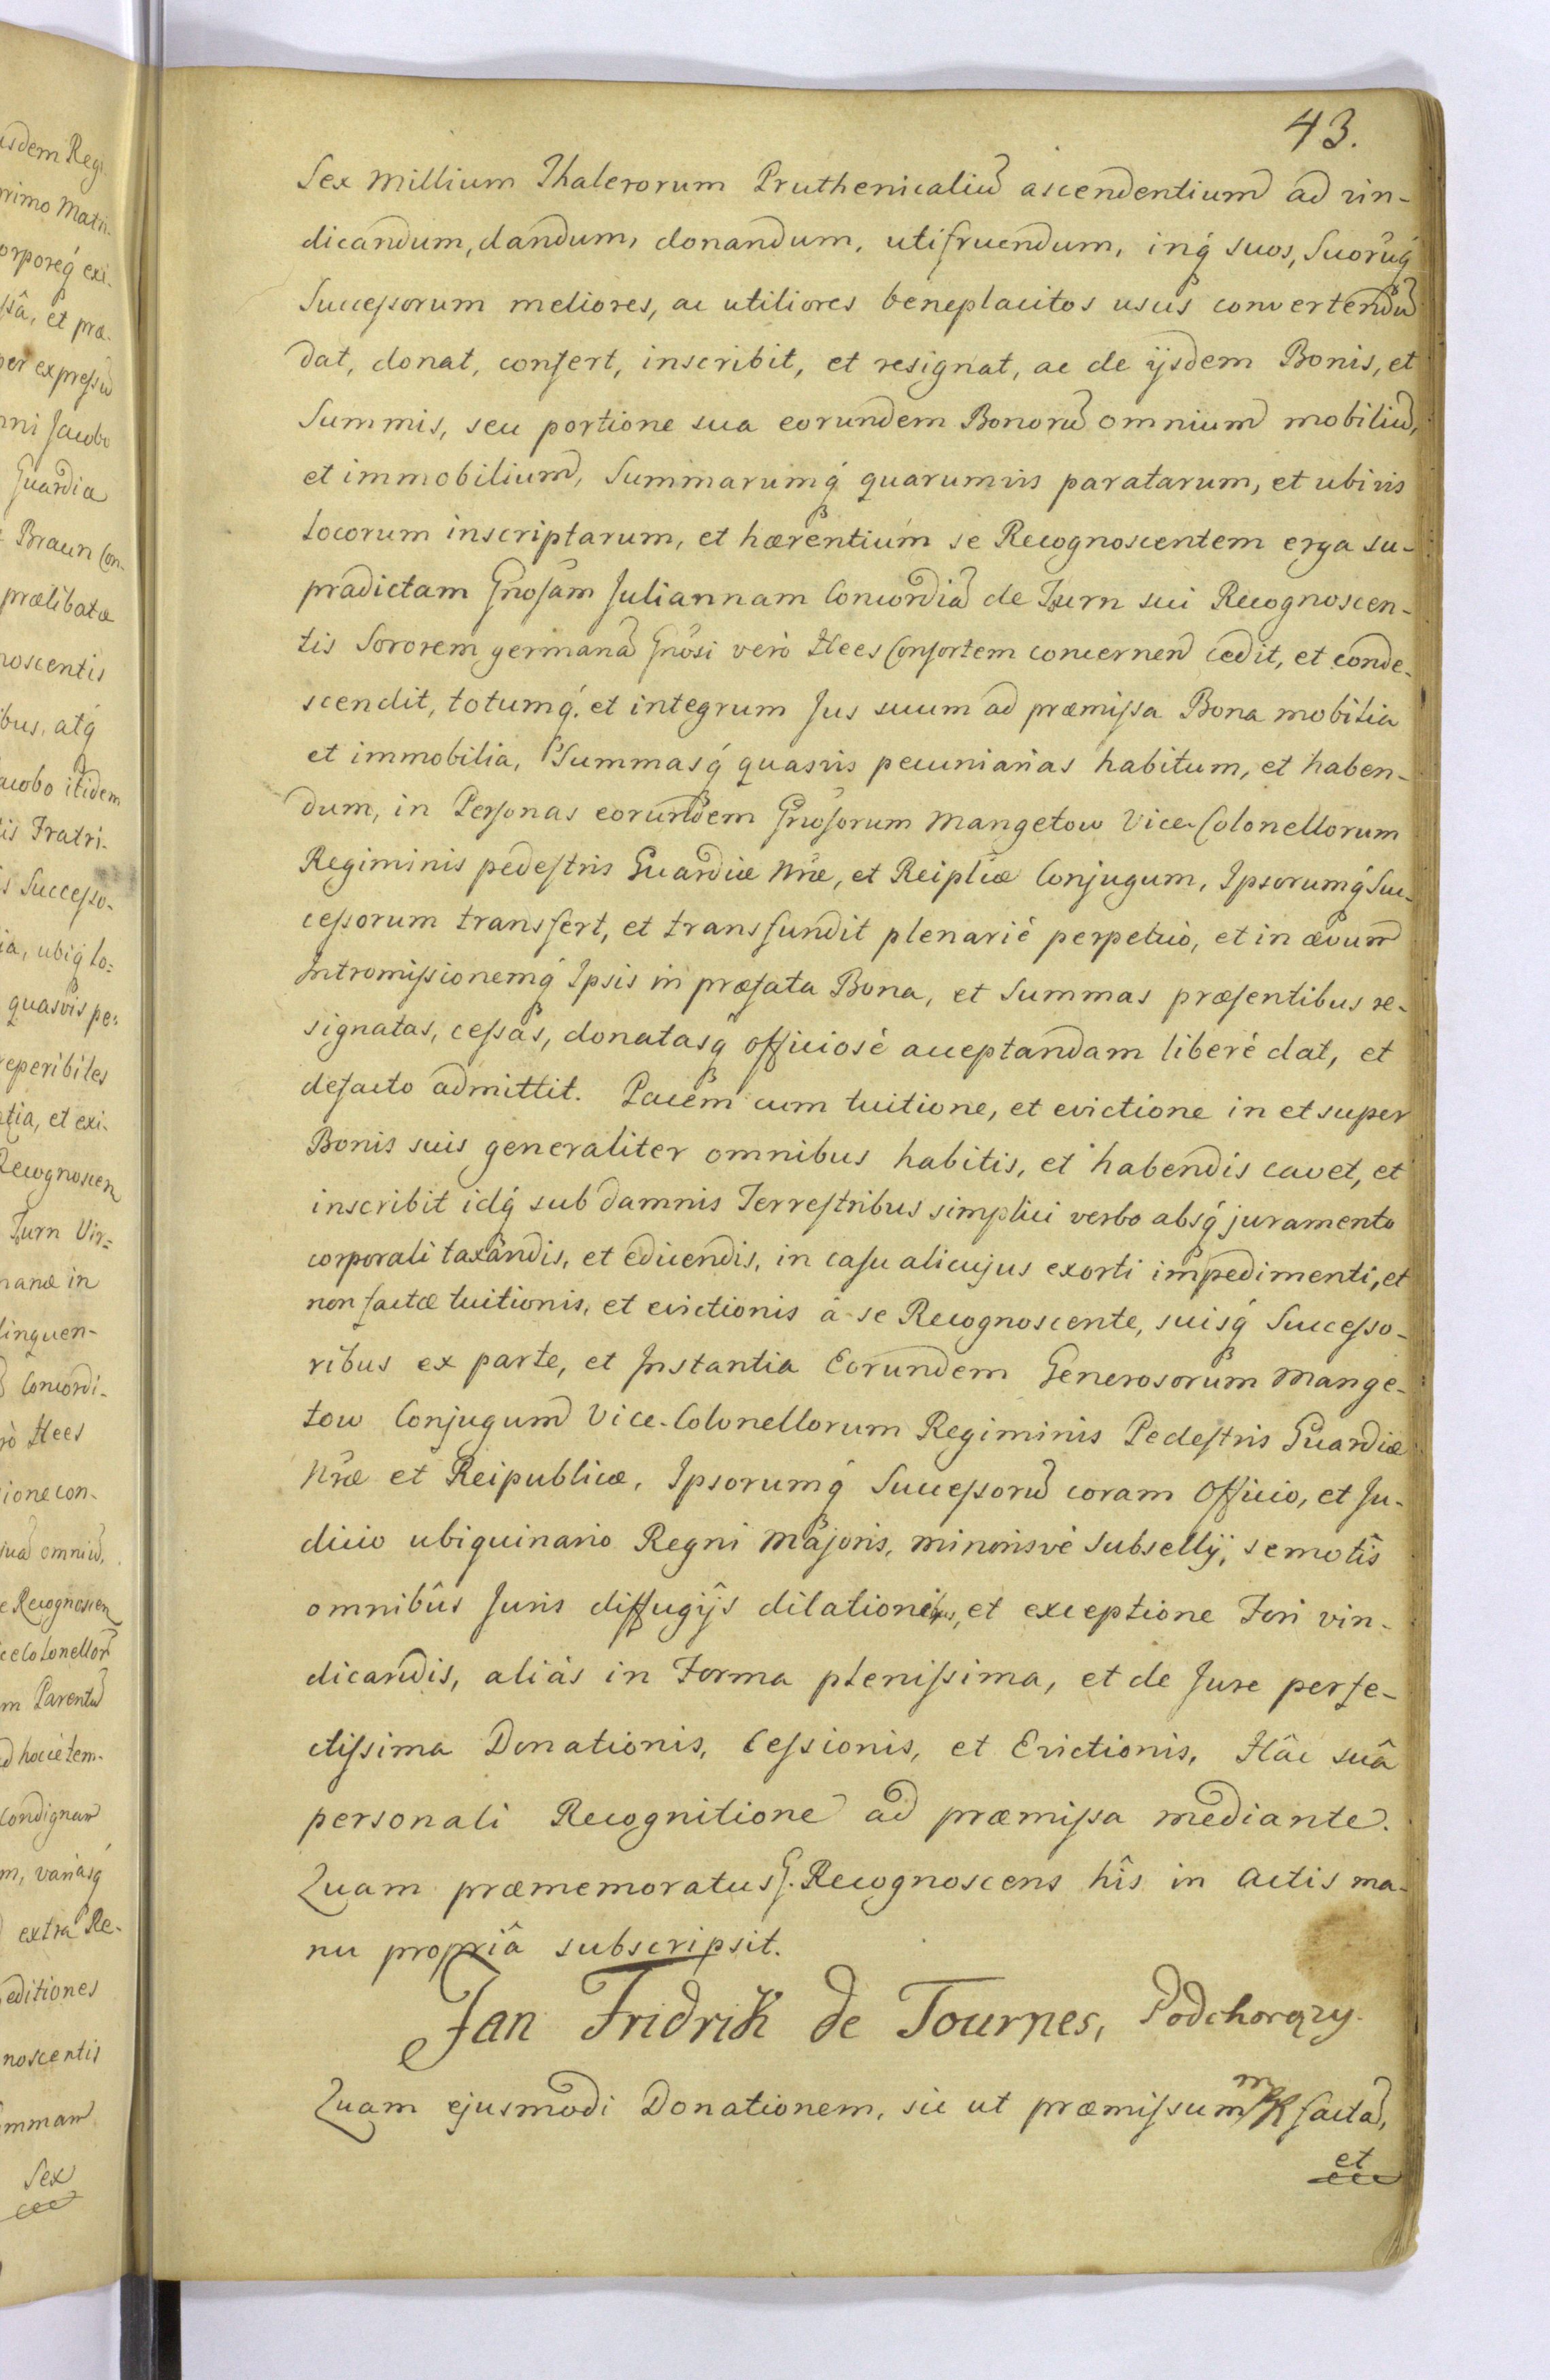 43.
Sex Millium Thalerorum Pruthenicaliũ ascendentium ad vin-
dicandum, dandum, donandum, utifruendum, inq́ suos, Suorũq́
Successorum meliores, ac utiliores beneplacitos usus convertendũ
dat, donat, confert, inscribit, et resignat, ac de ijsdem Bonis, et
Summis, seu portione sua eorundem Bonorũ omnium mobiliũ,
et immobilium, Summarumq́ quarumvis paratarum, et ubivis
locorum inscriptarum, et hærentium se Recognoscentem erga su-
pradictam Gnosam Juliannam Concordiã de Turn sui Recognoscen-
tis Sororem germanã Gnosi verò Hees Consortem concernen cedit, et conde-
scendit, totumq́ et integrum Jus suum ad præmissa Bona mobilia
et immobilia, Summasq́ quasvis pecuniarias habitum, et haben-
dum, in Personas eorundem Gnosorum Mangetow Vice-Colonellorum
Regiminis pedestris Guardiæ Nræ, et Reiplicæ Conjugum, Ipsorumq́ Suc-
cessorum transfert, et transfundit plenariè perpetuò, et in ævum
Intromissionemq́ Ipsis in præfata Bona, et Summas præsentibus re-
signatas, cessas, donatasq́ officiosè acceptandam liberè dat, et
defacto admittit. Pacem cum tuitione, et evictione in et super
Bonis suis generaliter omnibus habitis, et habendis cavet, et
inscribit idq́ sub damnis Terrestribus simplici verbo absq́ juramento
corporali taxandis, et educendis, in casu alicujus exorti impedimenti, et
non factæ tuitionis, et evictionis à se Recognoscente, suisq́ Successo-
ribus ex parte, et Instantia Eorundem Generosorum Mange-
tow Conjugum Vice-Colonellorum Regiminis Pedestris Guardiæ
Nræ et Reipublicæ, Ipsorumq́ Successorũ coram Officio, et Ju-
dicio ubiquinario Regni Majoris, minorisvè Subsellij, semotis
omnibûs Juris diffugijs dilationibus, et exceptione Fori vin-
dicandis, aliàs in Forma plenissima, et de Jure perfe-
ctissima Donationis, Cessionis, et Evictionis, Hâc suâ
personali Recognitione ad præmissa mediante.
Quam præmemoratus G. Recognoscens hîs in Actis ma-
nu propriâ subscripsit.
Jan Fridrik de Tournes, Podchorąży.
Quam ejusmodi Donationem, sic ut præmissum factã,
et